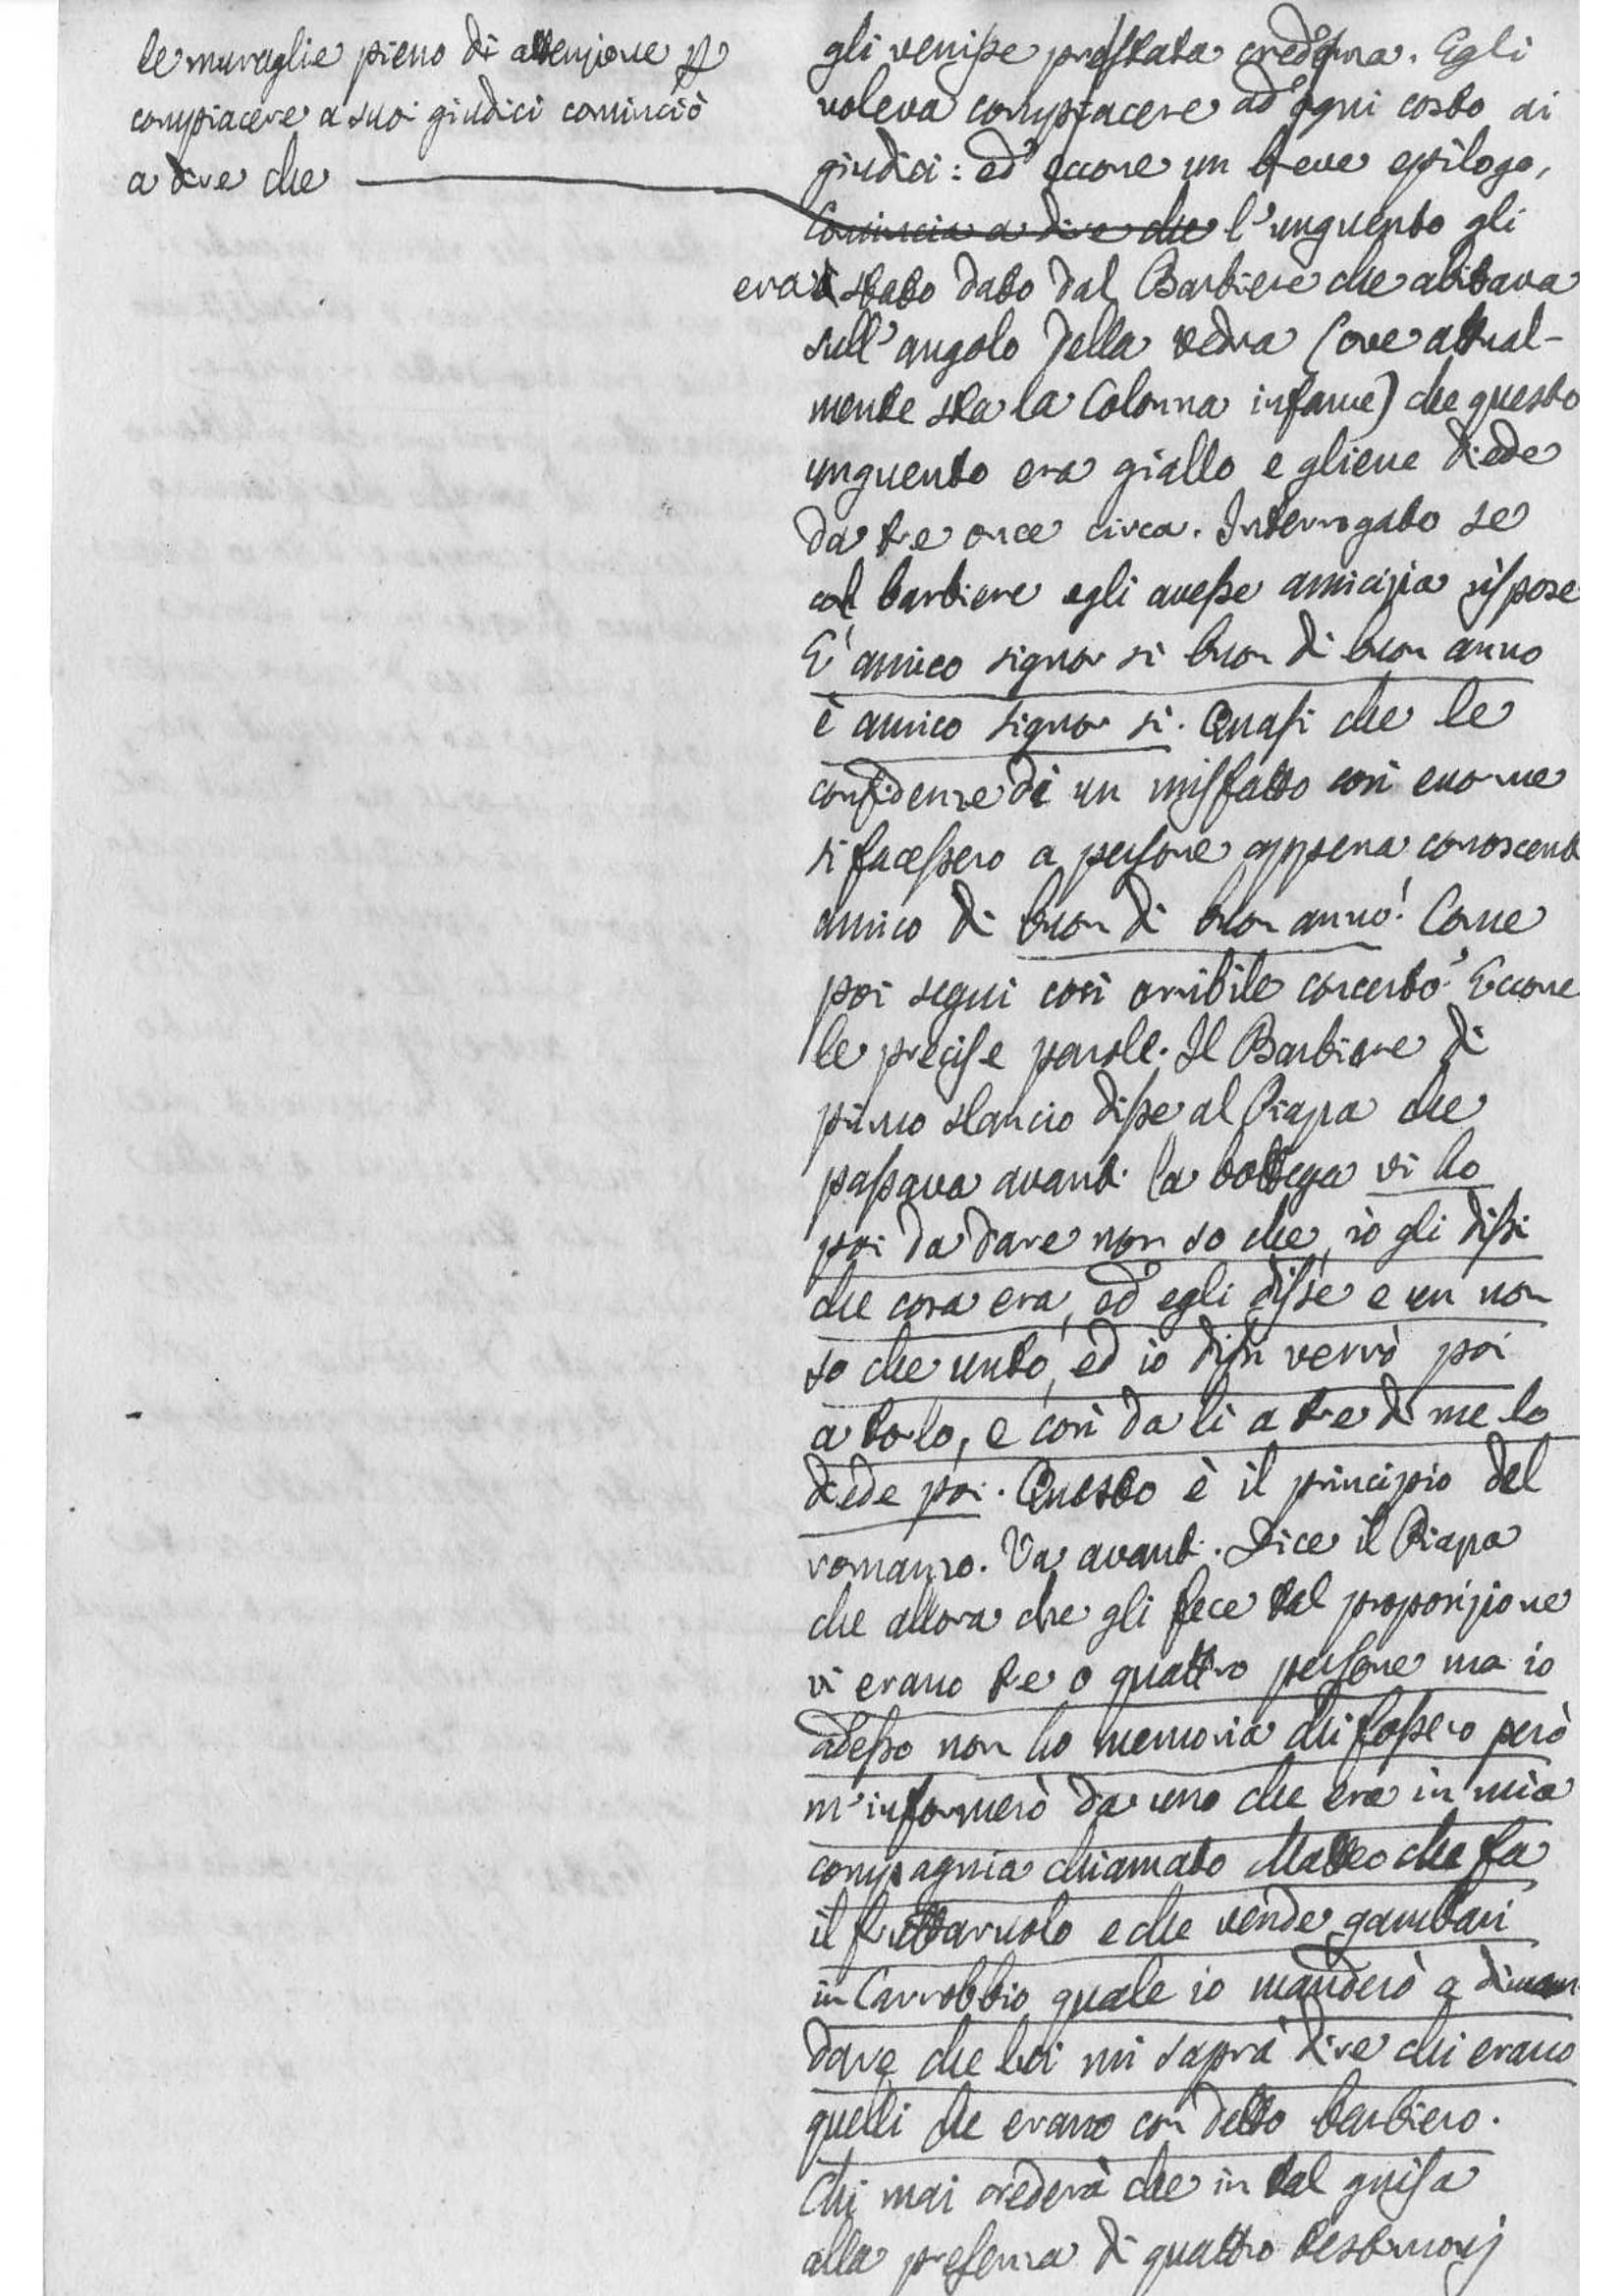 le muraglie pieno di attenzione per
compiacere a suoi giudici cominciò
a dire che
gli venisse prestata credenza. Egli
voleva compiacere ad ogni costo ai
giudici: ed eccone un breve epilogo,
Comincia a dire che l'unguento gli
era stato dato dal Barbiere che abitava
sull'angolo della vedra (ove attual-
mente sta la Colonna infame) che questo
unguento era giallo e gliene diede
da tre once circa. Interrogato se
col barbiere egli avesse amicizia rispose
È amico signor sì buon dì buon anno
è amico signor sì. Quasi che le
confidenze di un misfatto così enorme
si facessero a persone appena conoscent
amico di buon dì buon anno! Come
poi seguì così orribile concerto? Eccone
le precise parole. Il Barbiere di
primo slancio disse al Piapa che
passava avanti la bottega vi ho
poi da dare non so che, io gli dissi
che cosa era, ed egli disse e un non
so che unto, ed io dissi verrò poi
a torlo, e così da lì a tre dì me lo
diede poi. Questo è il principio del
romanzo. Va avanti. Dice il Piapa
che allora che gli fece tal proposizione
vi erano tre o quattro persone ma io
adesso non ho memoria chi fossero però
m'informerò da uno che era in mia
compagnia chiamato Matteo che fa
il fruttaruolo e che vende gambari
in Carrobbio quale io manderò a diman
dare che lui mi saprà dire chi erano
quelli che erano con detto barbiero.
Chi mai crederà che in tal guisa
alla presenza di quattro testimonj